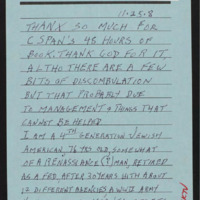 11-25-8
THANX SO MUCH FOR
CSPAN'S 48 HOURS OF
BOOK, THANK GOD FOR IT,
ALTHO THERE ARE A FEW
BITS OF DISCOMBULATION
BUT THAT PROBABLY DUE
TO MANAGEMENT & THINGS THAT
CANNOT BE HELPED
I AM A 4TH GENERATION JEWISH
AMERICAN, 76 YRS OLD, SOMEWHAT
OF A RENASSCANCE (?) MAN, RETIRED
AS A FED, AFTER 30 YEARS WITH ABOUT
12 DIFFERENT AGENCIES & WWII ARMY